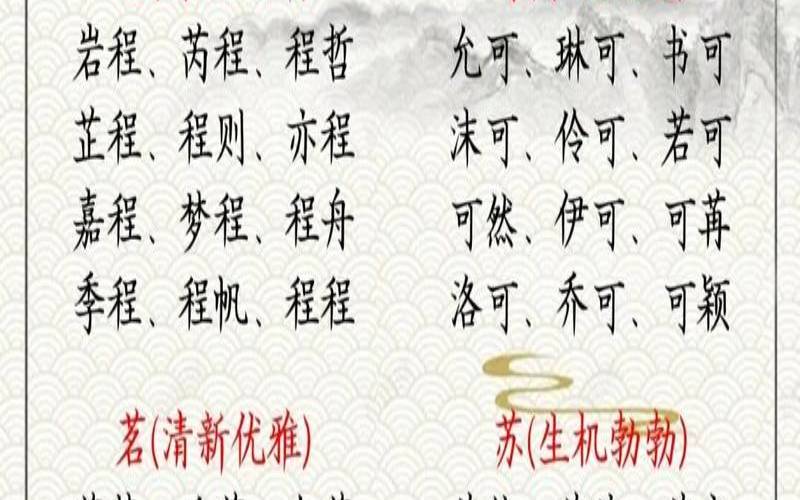 岩程、芮程、程哲
芷程、程则、亦程
嘉程、梦程、程舟
季程、程帆、程程
允可、琳可、书可
沫可、伶可、若可
可然、伊可、可苒
洛可、乔可、可颖
茗(清新优雅)
苏(生机勃勃)